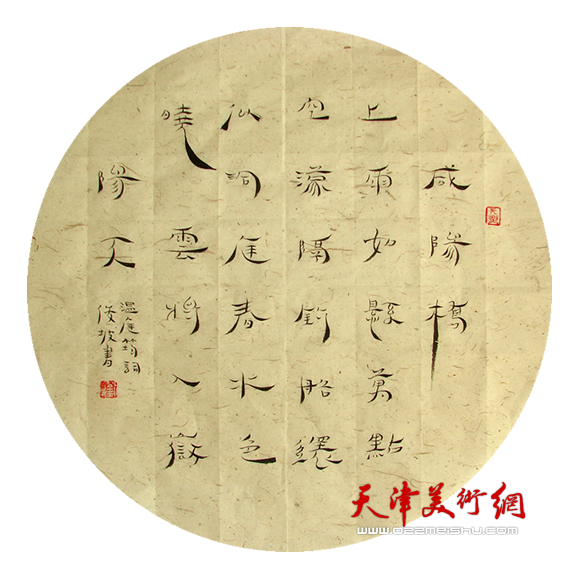 咸陽橋
上雨如懸萬點
空濛隔釣船還
似洞庭春水色
曉雲將入嶽
陽天
温庭筠詞
俊坡書
天津美術網
www.022meishu.com